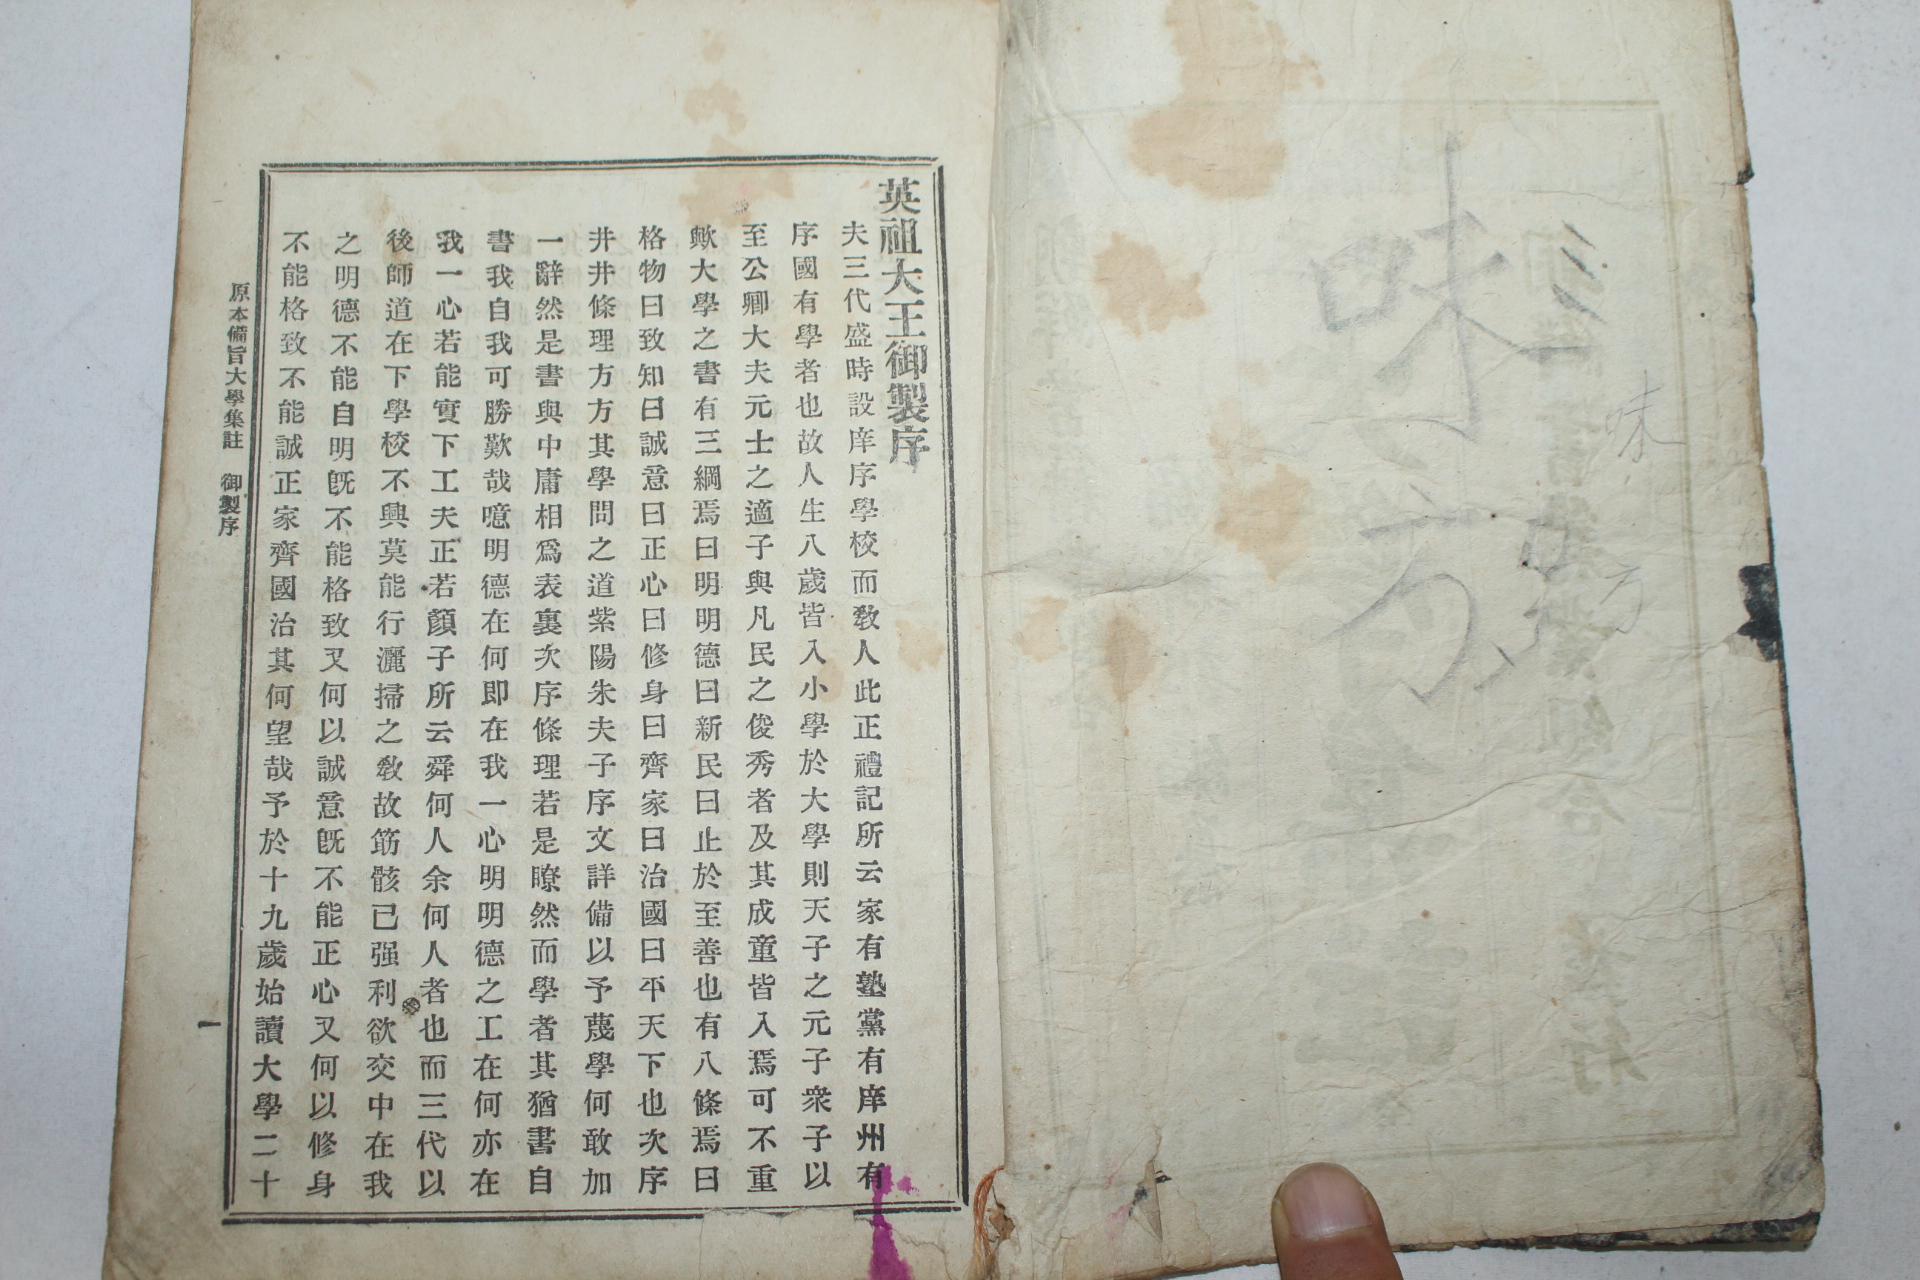 味
方
味
方
英祖大王御製序
夫三代盛時設庠序學校而敎人此正禮記所云家有塾黨有庠州有
序國有學者也故人生八歲皆入小學於大學則天子之元子衆子以
至公卿大夫元士之適子與凡民之俊秀者及其成童皆入焉可不重
歟大學之書有三綱焉曰明明德曰新民曰止於至善也有八條焉曰
格物曰致知曰誠意曰正心曰修身曰齊家曰治國曰平天下也次序
井井條理方方其學問之道紫陽朱夫子序文詳備以予蔑學何敢加
一辭然是書與中庸相爲表裏次序條理若是瞭然而學者其猶書自
書我自我可勝歎哉噫明德在何卽在我一心明明德之工在何亦在
我一心若能實下工夫正若顏子所云舜何人余何人者也而三代以
後師道在下學校不興莫能行灑掃之敎故筋骸已强利欲交中在我
之明德不能自明旣不能格致又何以誠意旣不能正心又何以修身
不能格致不能誠正家齊國治其何望哉予於十九歲始讀大學二十
原本備旨大學集註 御製序
一